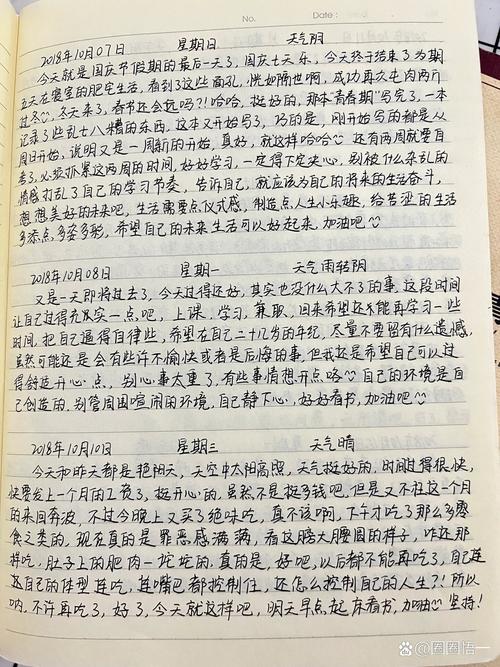 No.
Date
2018年10月07日 星期日 天气阴
今天就是国庆节假期的最后一天了,国庆七天乐,今天终于结束了为期
五天在寝室的肥宅生活,看到了这些面孔,恍如隔世啊,成功再次屯肉两斤
过冬☺,冬天来了,春节还会远吗?!哈哈,挺好的,那本"青春期"写完了,一本
记录了些乱七八糟的东西,这本又开始写了,巧的是,刚开始写的都是从
周日开始,说明又是一周新的开始,真好,就这样哈哈☺ 还有两周就要自
考了,必须抓紧这两周的时间,好好学习,一定得下定决心,别被什么杂乱的
情感打乱了自己的学习节奏,告诉自己,就应该为自己的将来的生活奋斗,
想想美好的未来吧,生活需要点仪式感,制造点人生小乐趣,给苦涩的生活
多添点多姿多彩,希望自己的未来生活可以好起来,加油吧☺
2018年10月08日 星期一 天气雨转阴
又是一天即将过去了,今天过得还好,其实也没什么大不了的事,这段时间
让自己过得充实一点吧,上课,学习,兼职,回来希望还能再学习一些
时间,把自己逼得自律些,希望在自己二十几岁的年纪,尽量不要留有什么遗憾,
虽然可能还是会有些许不愉快或者是后悔的事,但我还是希望自己可以过
得舒适开心点,别心事太重了,有些事情想开点咯☺自己的环境是自
己创造的,别管周围喧闹的环境,自己静下心,好好看书,加油吧☺
2018年10月10日 星期三 天气晴
今天和昨天都是艳阳天,天空中太阳高照,天气挺好的,时间过得很快,
快要发上一个月的工资了,挺开心的,虽然不是挺多钱吧,但是又不枉这一个月
的来回奔波,不过今晚上又买了绝味吃,真不该啊,下午才吃了那么多零
食之类的,现在真的是罪恶感满满,看这膀大腰圆的样子,咋还那
样吃,肚子上的肥肉一坨坨的,真的是,好吧,以后都不能再吃了,自己连
自己的体型连吃,连嘴巴都控制住,还怎么控制自己的人生?!所以
呐,不许再吃了,好了,今天就这样吧,明天早点起床看书,加油☺坚持!
圈圈悟一